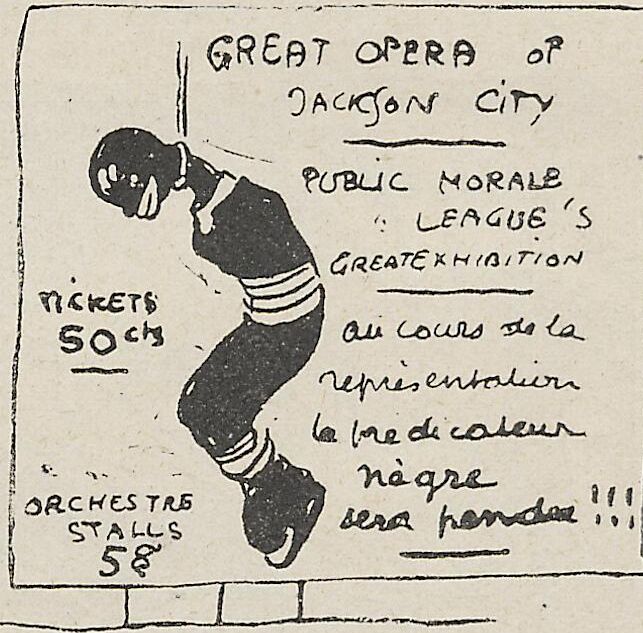 GREAT OPERA OF
JACKSON CITY
PUBLIC MORALE
LEAGUE'S
GREAT EXHIBITION
TICKETS
50 cts
au cours de la
représentation
le prédicateur
nègre
sera pendu !!!
ORCHESTRE
STALLS
5$